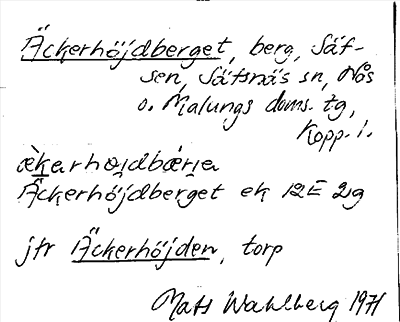 Äckerhöjdberget, berg, Säf-
sen, Säfsnäs sn, Nås
o. Malungs doms. tg,
Kopp. l.
Äckerhöjdberget ek 12E 2g
jfr Äckerhöjden, torp
Mats Wahlberg 1971